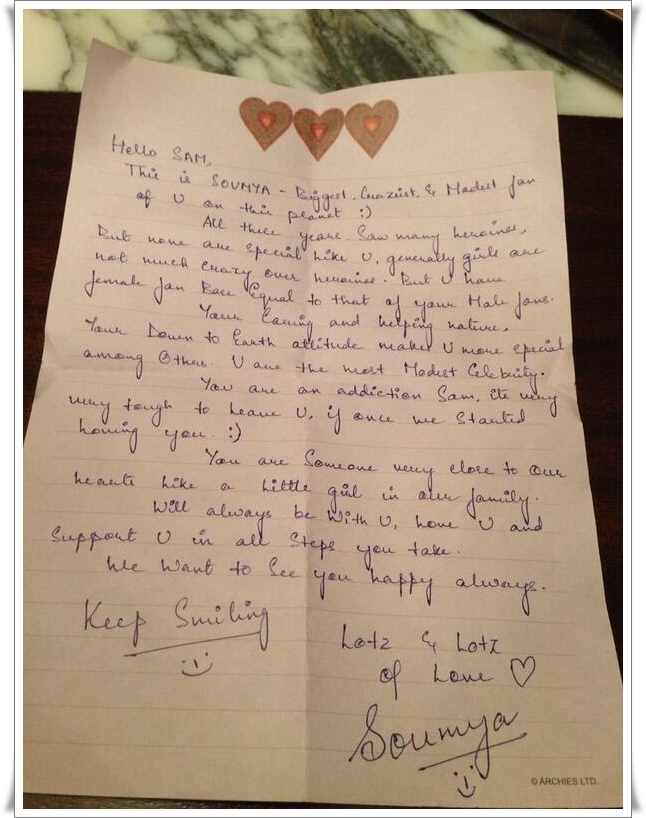 Hello SAM,
This is SOUMYA - Biggest, Craziest, & Madest fan
of U on this planet :)
All these years. Saw many heroines,
But none are special Like U, generally girls are
not much crazy over heroines. But U have
female fan Base Equal to that of your Male fans.
Your Caring and helping nature,
Your Down to Earth attitude makes U more special
among Others. U are the most Modest Celebrity.
You are an addiction Sam, its very
very tough to Leave U, if once we Started
Loving you. :)
You are Someone very close to our
hearts Like a Little girl in our family.
Will always be With U, Love U and
Support U in all Steps you take.
We Want to See you happy always.
Keep Smiling
Lotz & Lotz
of Love ♡
Soumya
© ARCHIES LTD.